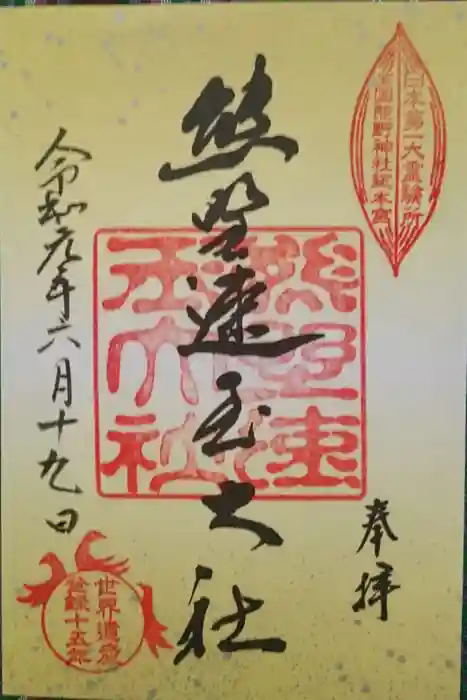 日本第一大霊験所
勅宣国熊野神社総本宮
奉拝
熊野速玉大社
熊野速玉大社
令和元年六月十九日
世界遺産
登録十五年